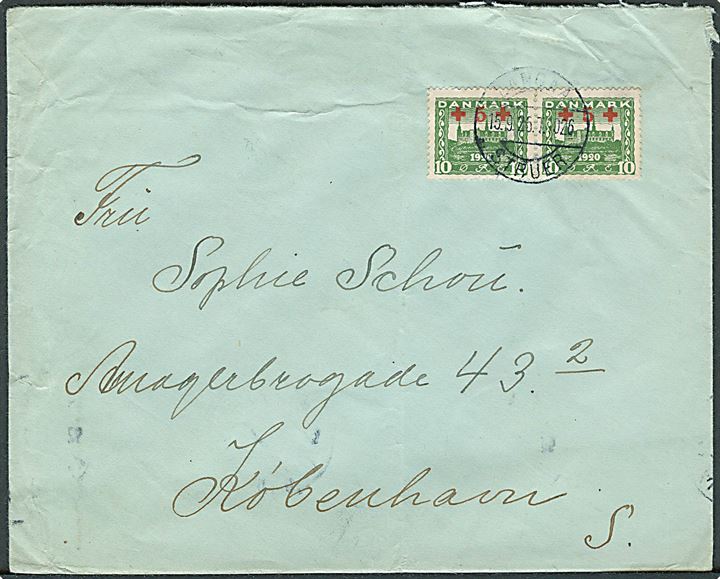 DANMARK DANMARK
+ 5 + + 5 +
15.9.26.
STRUER
1920
10 10
Fru
Sophie Schou.
Amagerbrogade 43.2
København
S.